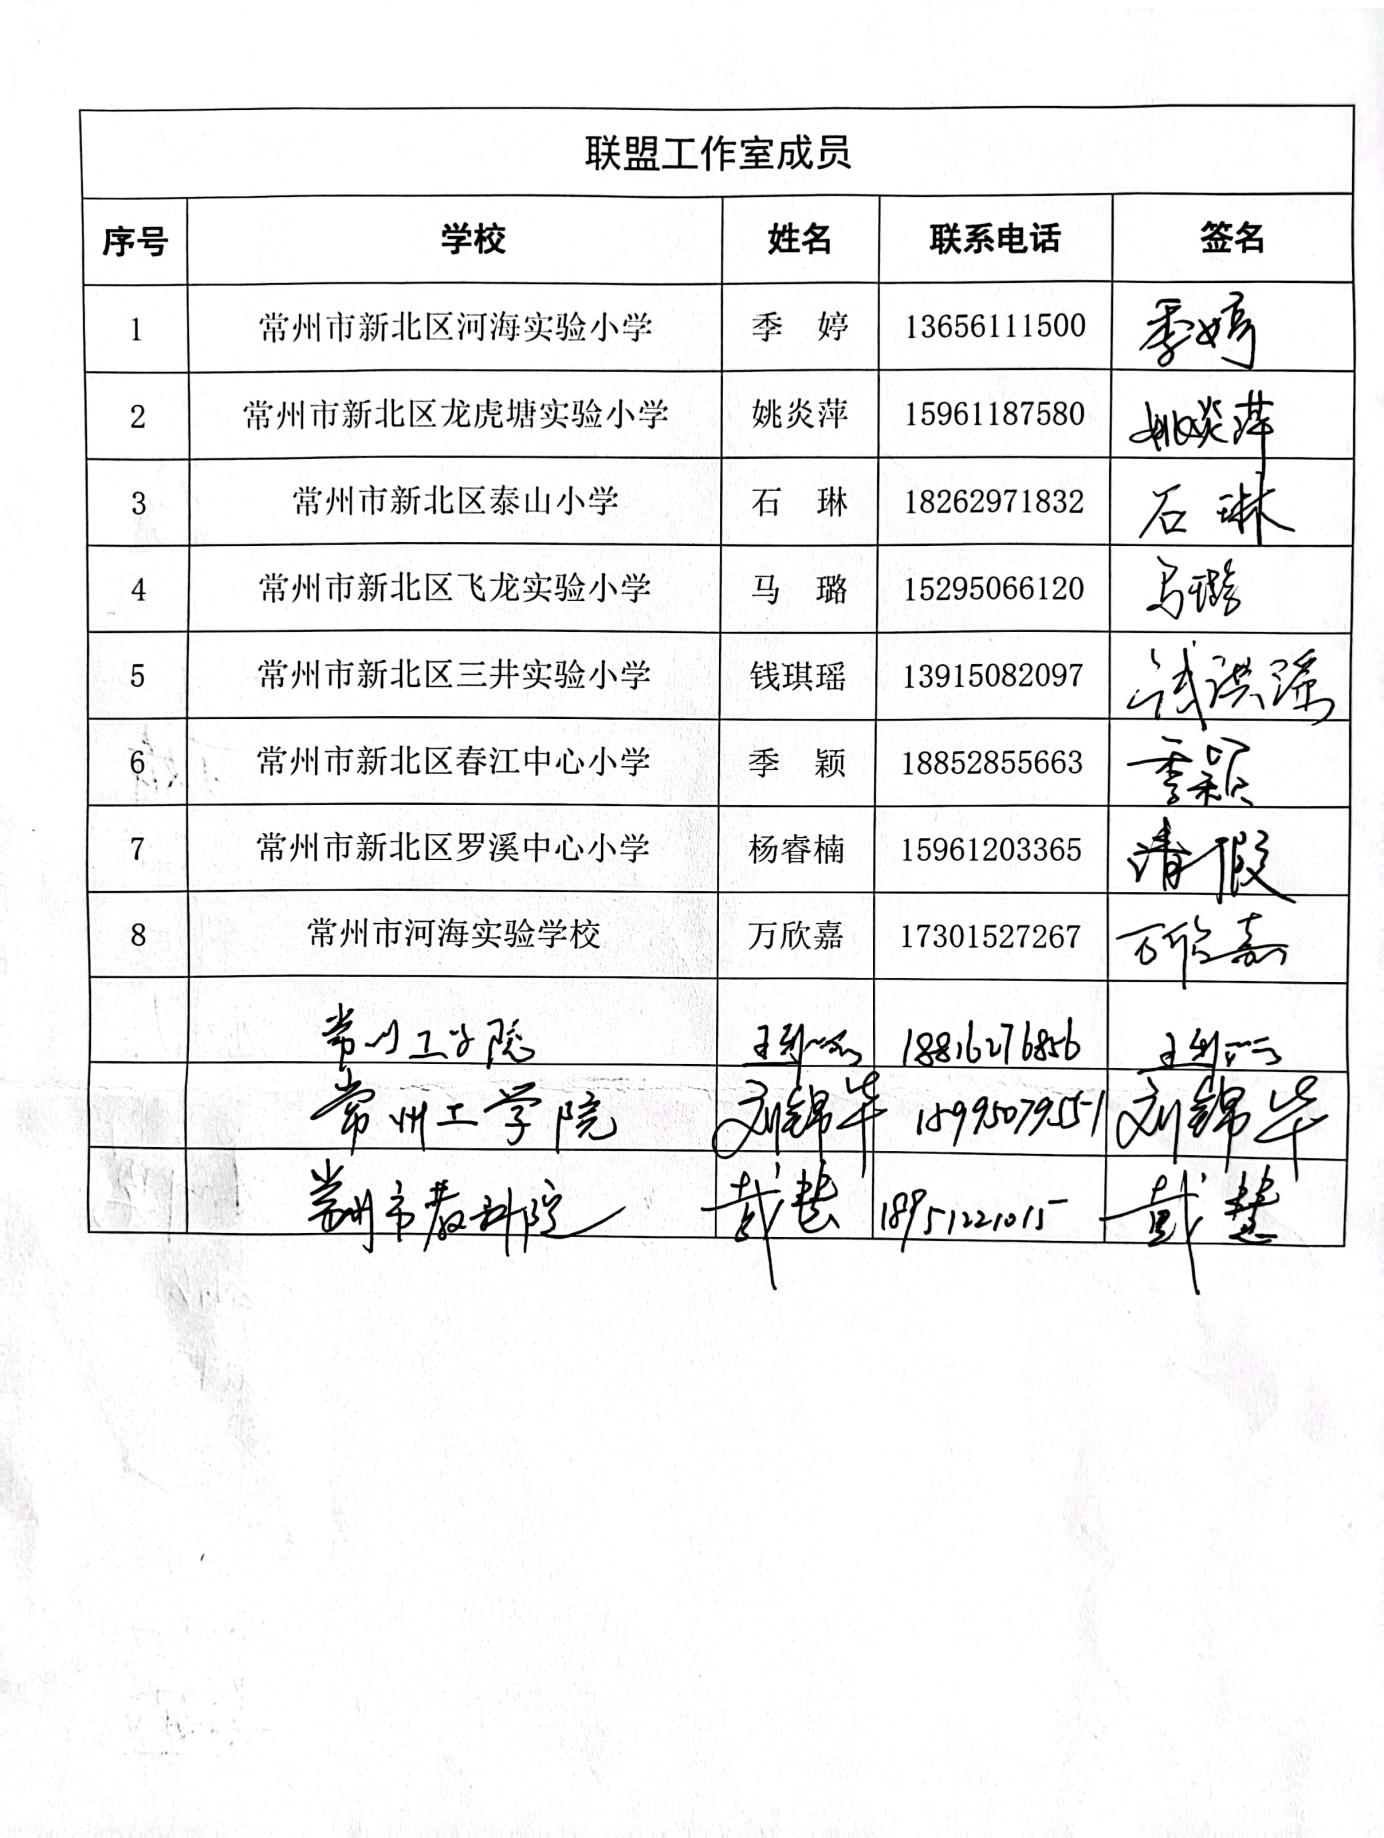 联盟工作室成员
序号 学校 姓名 联系电话 签名
1 常州市新北区河海实验小学 季 婷 13656111500 季婷
2 常州市新北区龙虎塘实验小学 姚炎萍 15961187580 姚炎萍
3 常州市新北区泰山小学 石 琳 18262971832 石琳
4 常州市新北区飞龙实验小学 马 璐 15295066120 马璐
5 常州市新北区三井实验小学 钱琪瑶 13915082097 钱琪瑶
6 常州市新北区春江中心小学 季 颖 18852855663 季颖
7 常州市新北区罗溪中心小学 杨睿楠 15961203365 请假
8 常州市河海实验学校 万欣嘉 17301527267 万欣嘉
常州工学院 18816276856
常州工学院 刘锦华 18995079551 刘锦华
常州市教科院 戴慧 18951221015 戴慧